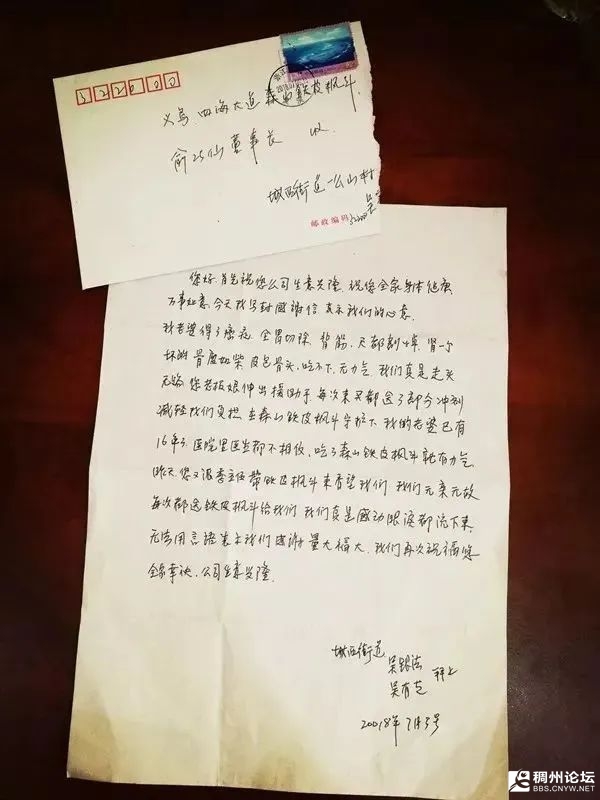 322000
义乌 四海大道 森山铁皮枫斗
俞巧仙董事长 收
城西街道一么山村
邮政编码
您好 首先祝您公司生意兴隆 祝您全家身体健康
万事如意 今天我写封感谢信 表示我们的心意
我老婆得了癌症 全胃切除 背筋 都割掉 肾一个
坏 骨瘦如柴 皮包骨头 吃不下 无力气 我们真是走头
无路 您老板娘伸出援助手 每次来买都送了部分冲剂
减轻我们负担 在森山铁皮枫斗守护下 我的老婆已有
16年了 医院里医生都不相信 吃了森山铁皮枫斗就有力气
昨天 您又派季主任带铁皮枫斗来看望我们 我们无亲无故
每次都送铁皮枫斗给我们 我们真是感动眼泪都流下来
无法用言语表示我们感谢 量大福大 我们再次祝福您
全家幸福、公司生意兴隆
城西街道
吴银法
吴有芝
拜上
20018年7月3号
稠州论坛
BBS.CNYW.NET